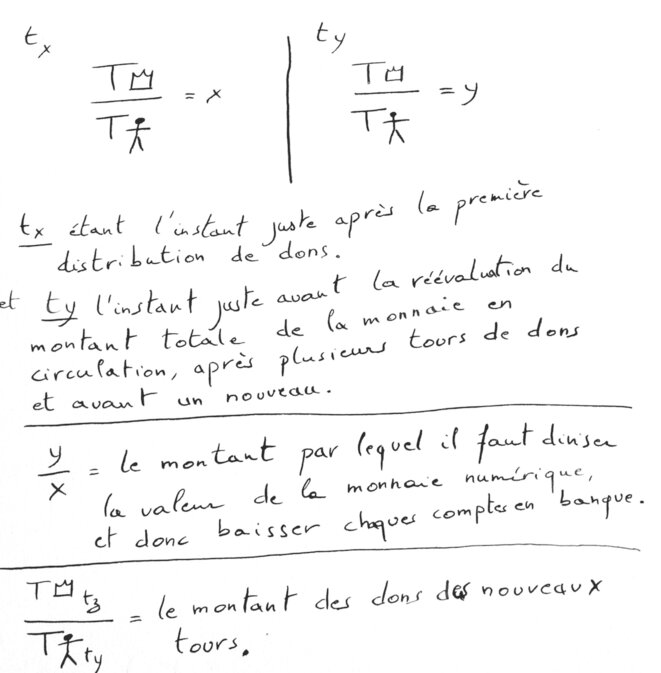 tx
T
T = x
ty
T
T = y
tx étant l'instant juste après la première
distribution de dons.
et ty l'instant juste avant la réévaluation du
montant totale de la monnaie en
circulation, après plusieurs tours de dons
et avant un nouveau.
y
x = le montant par lequel il faut diviser
la valeur de la monnaie numérique,
et donc baisser chaques comptes en banque.
T tz
T ty = le montant des dons des nouveaux
tours.